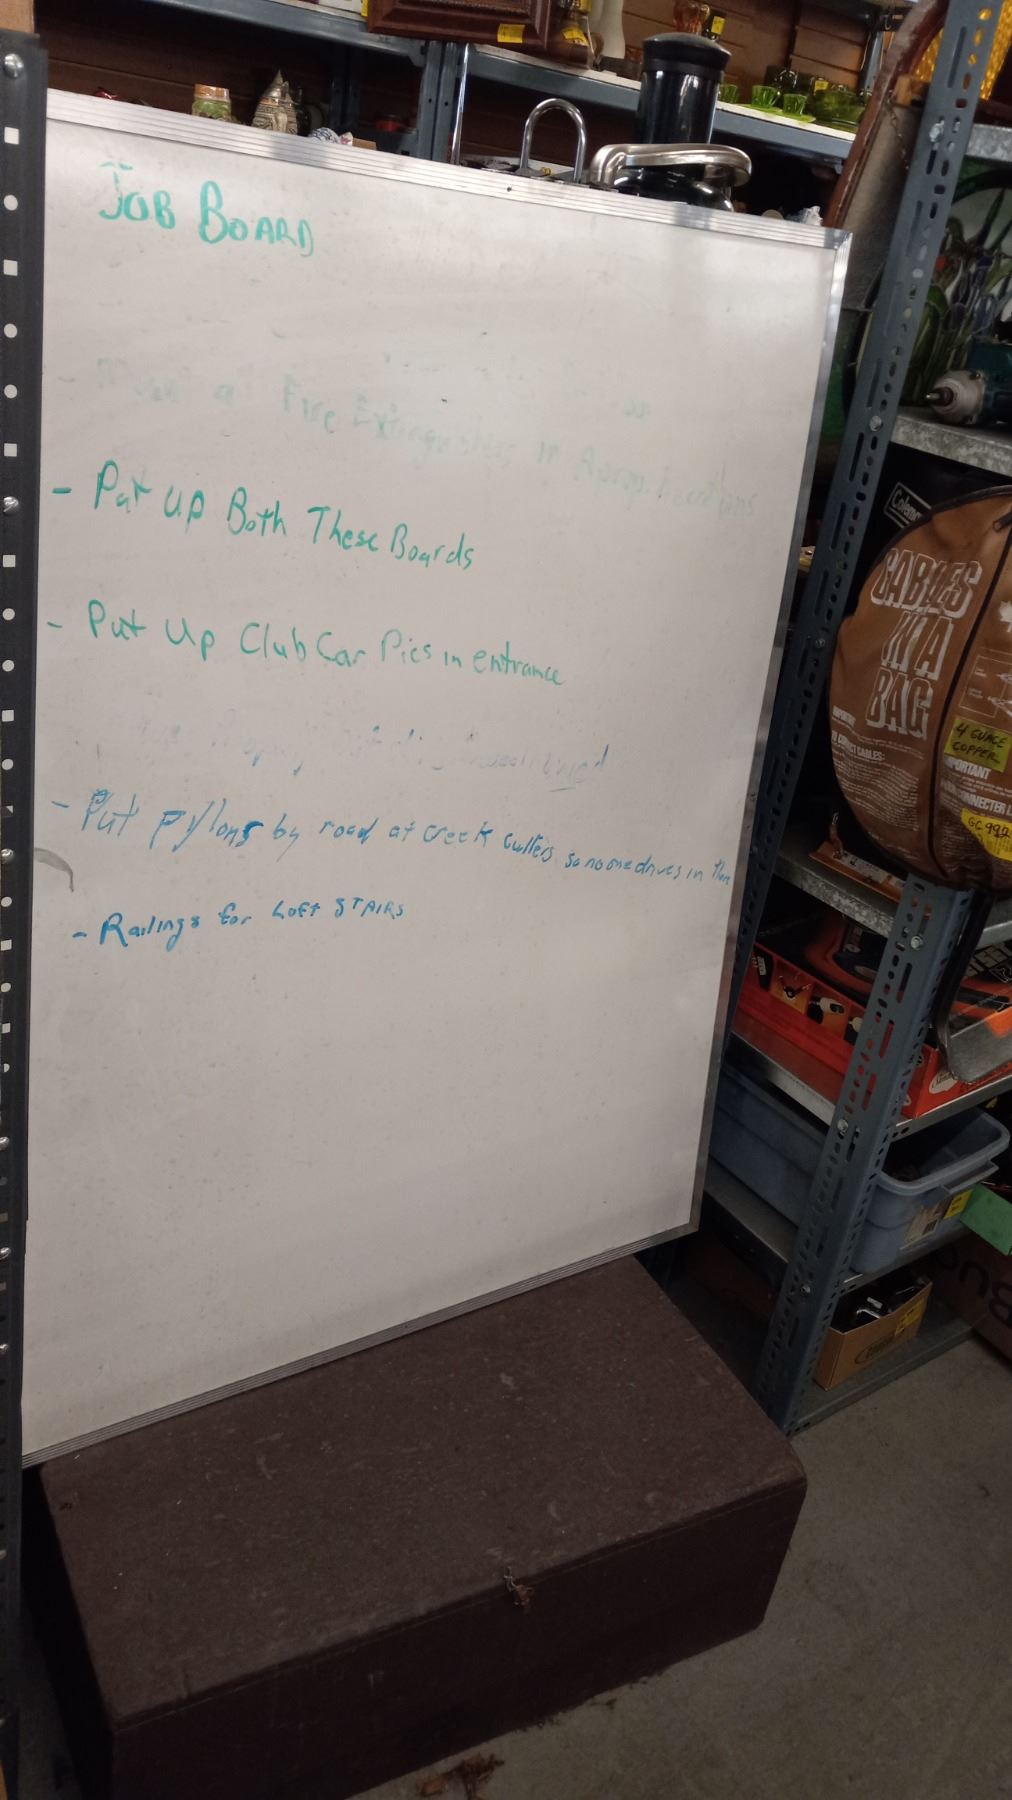 JOB BOARD
a Fire Extinguishers in
- Put up Both These Boards
- Put Up Club Car Pics in entrance
- Put pylons by road at creek culters so no one drives in them
- Railings for Loft STAIRS
Coleman
CABLES
IN A
BAG
IMPORTANT
4 GUAGE
COPPER
IMPORTANT